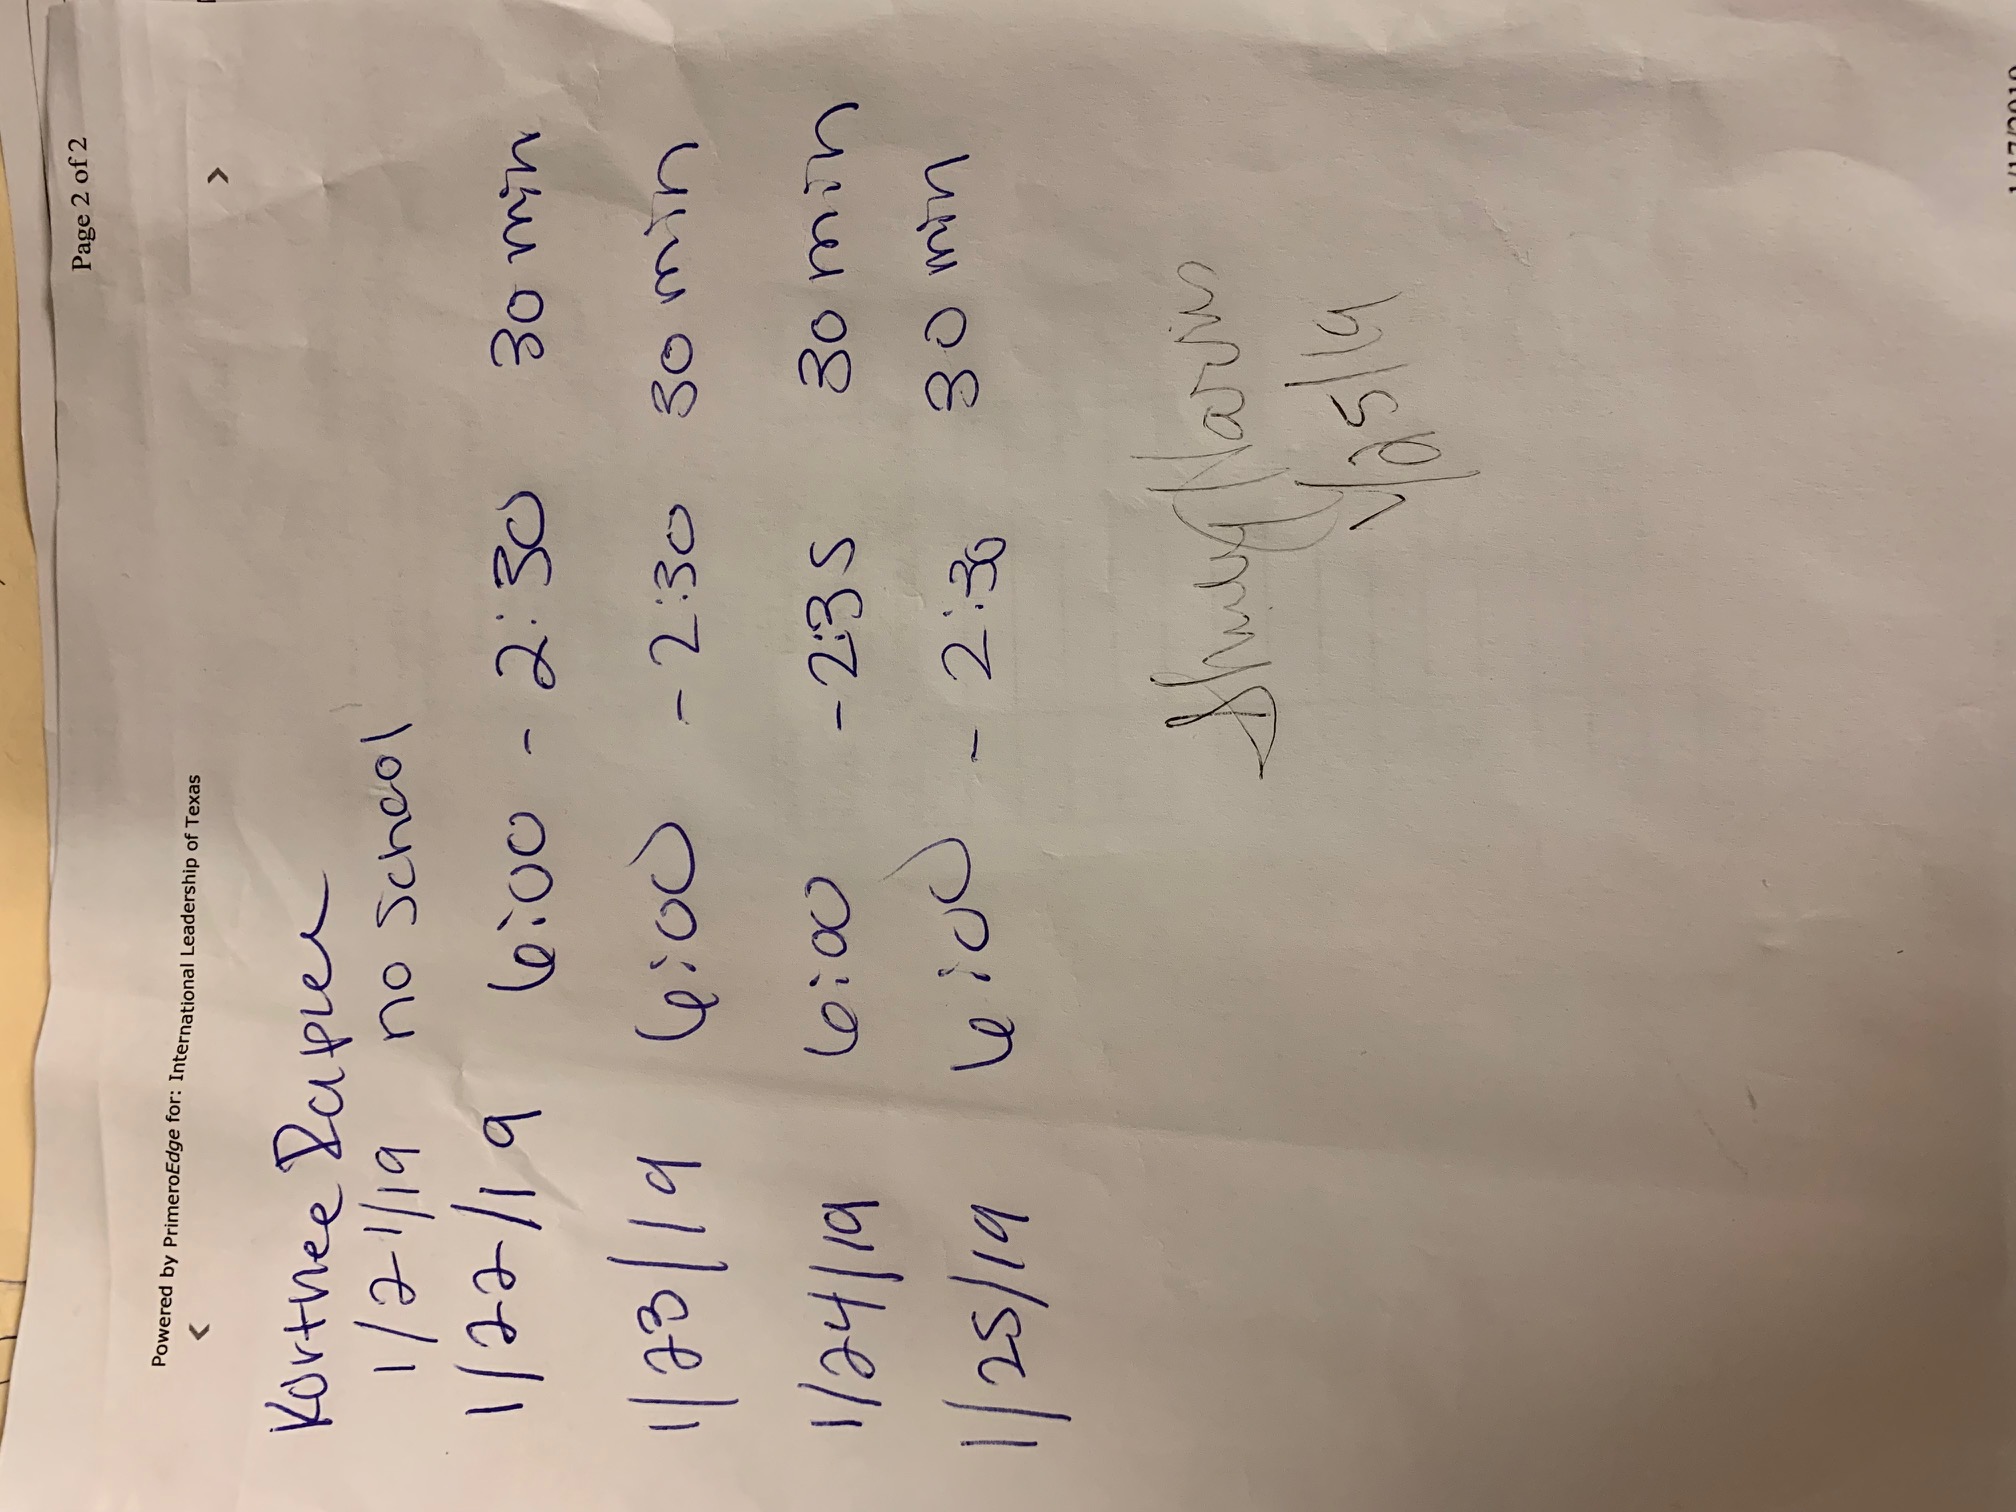 Page 2 of 2
Powered by PrimeroEdge for: International Leadership of Texas
< >
Kortnee
1/21/19 no school
1/22/19 6:00 - 2:30 30 min
1/23/19 6:00 - 2:30 30 min
1/24/19 6:00 - 2:35 30 min
1/25/19 6:00 - 2:30 30 min
Marin
1/25/19
1/17/2019